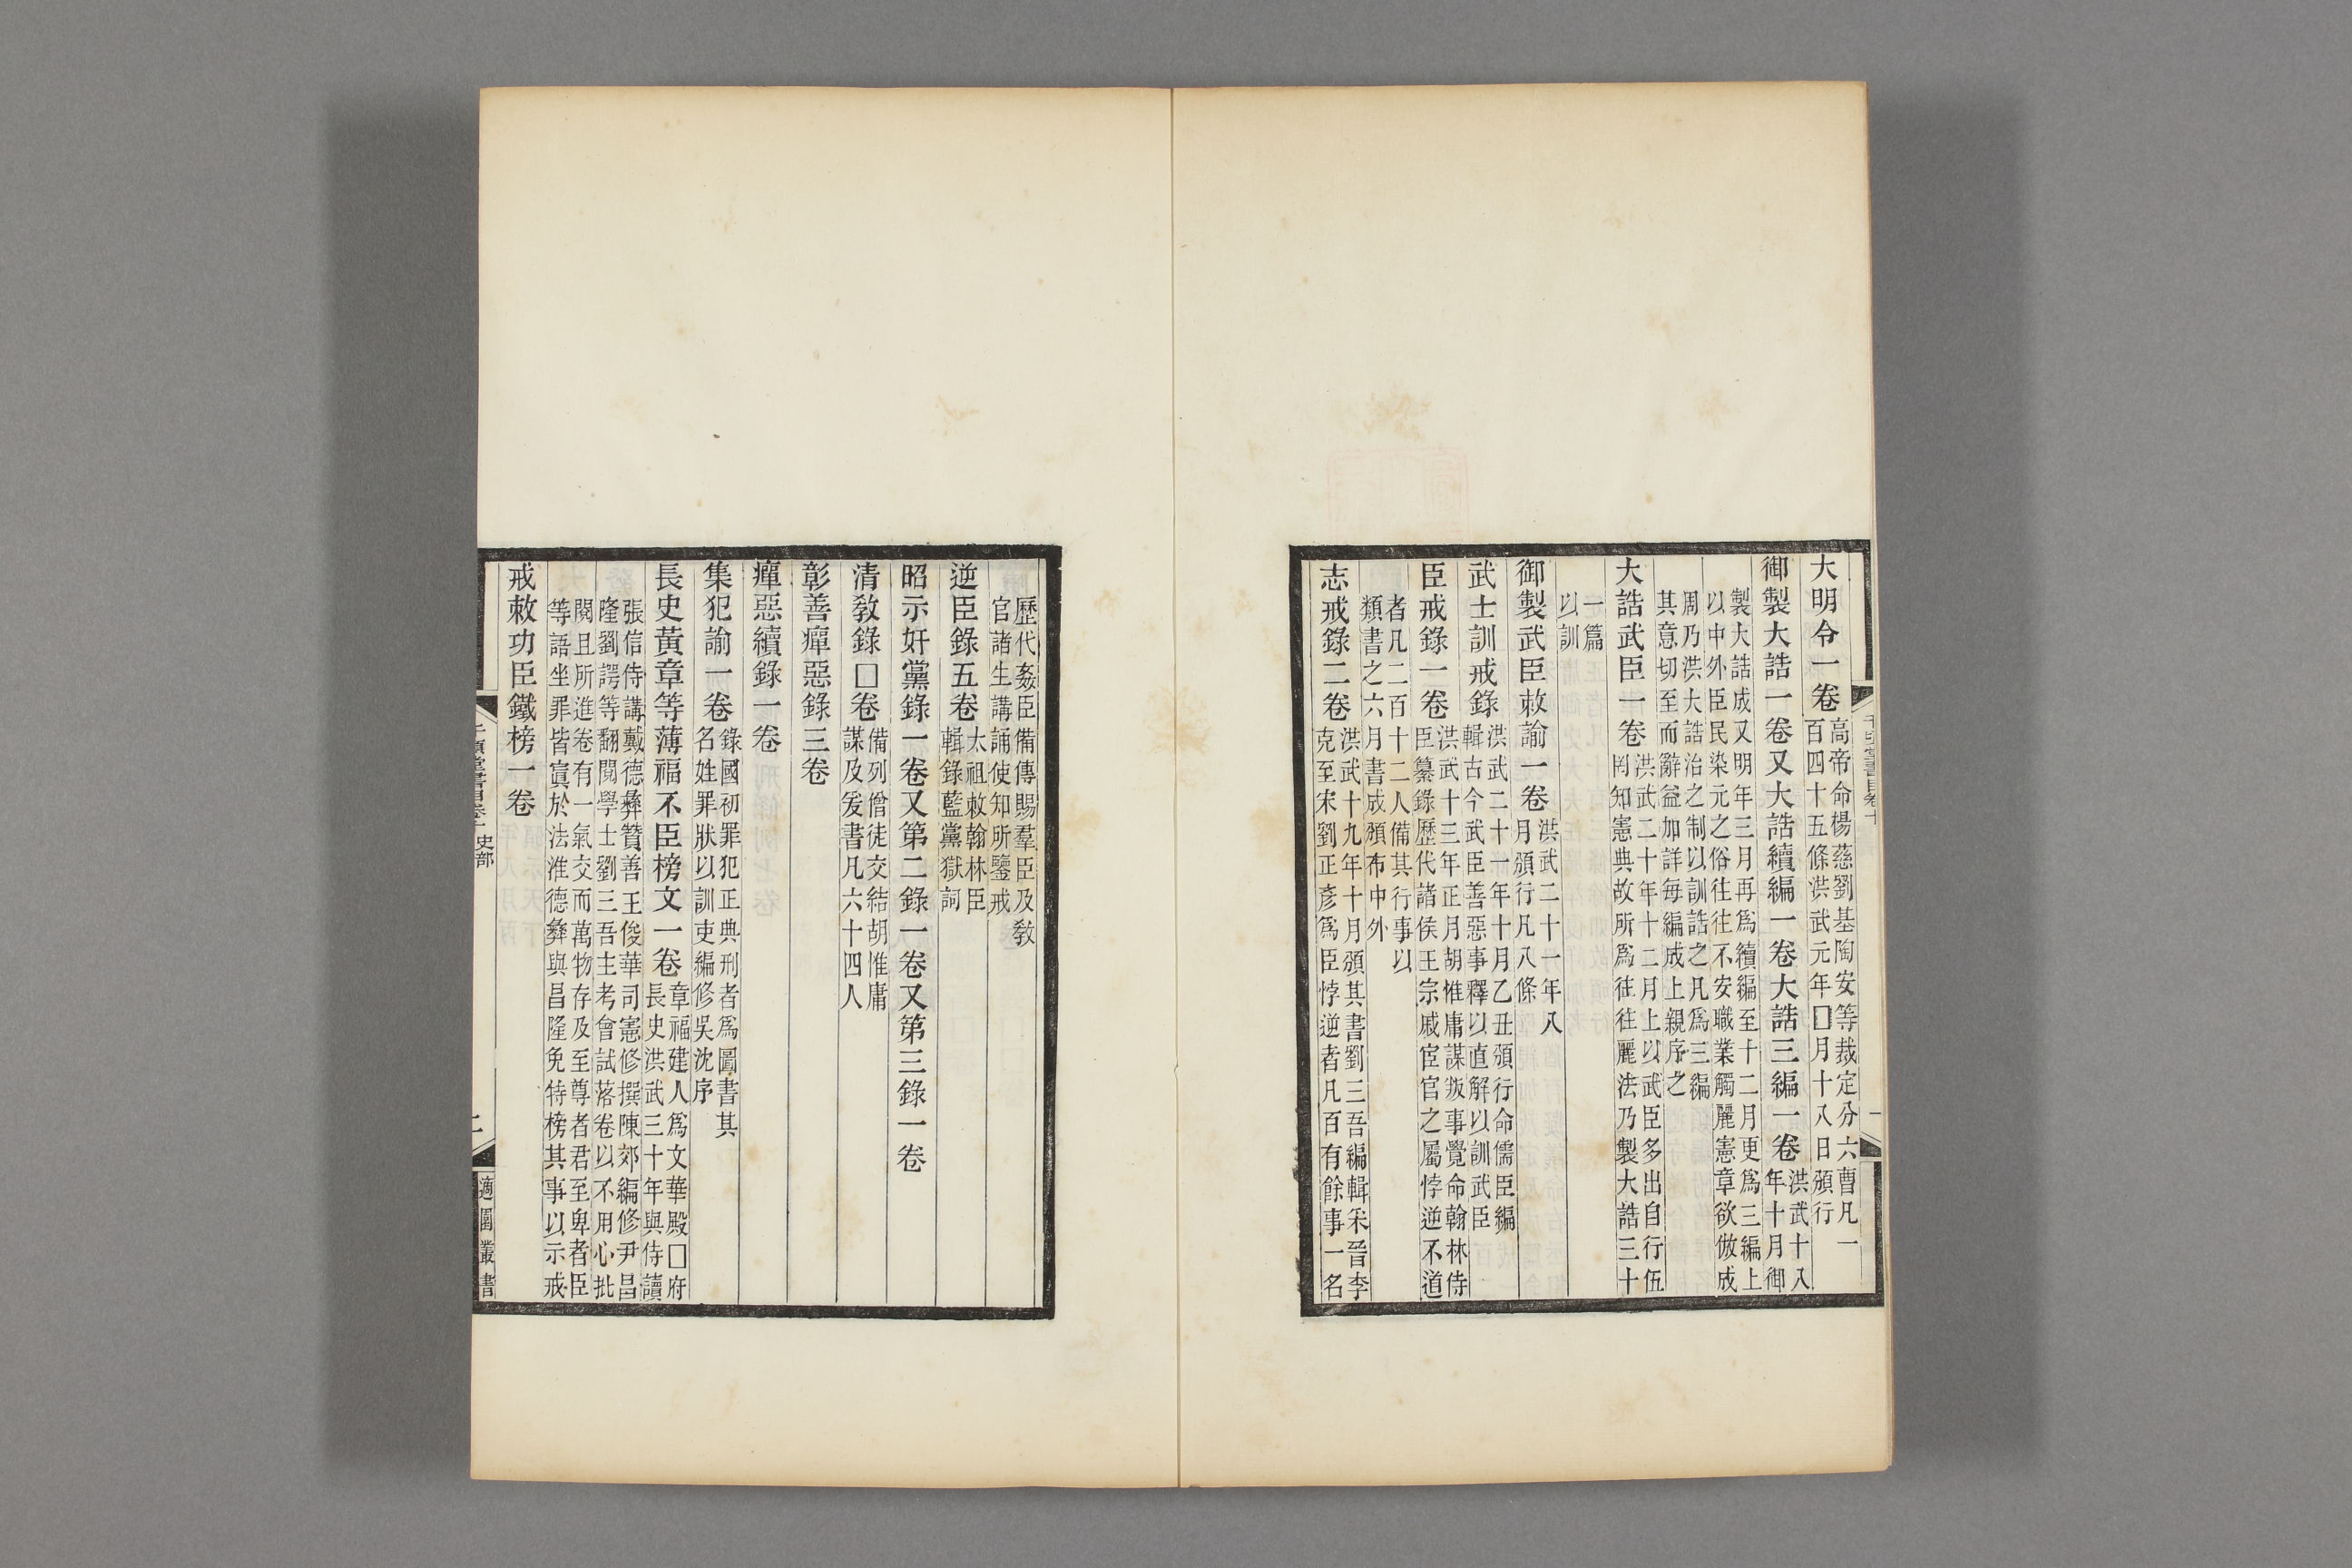 大明令一卷
高帝命楊慈劉基陶安等裁定分六曹凡一
百四十五條洪武元年□月十八日頒行
御製大誥一卷又大誥續編一卷大誥三編一卷
洪武十八
年十月御
製大誥成又明年三月再爲續編至十二月更爲三編上
以中外臣民染元之俗往往不安職業觸麗憲章欲倣成
周乃洪大誥治之制以訓誥之凡爲三編
其意切至而辭益加詳每編成上親序之
大誥武臣一卷
洪武二十年十二月上以武臣多出自行伍
罔知憲典故所爲往往麗法乃製大誥三十
一篇
以訓
御製武臣敕諭一卷
洪武二十一年八
月頒行凡八條
武士訓戒錄
洪武二十一年十月乙丑頒行命儒臣編
輯古今武臣善惡事釋以直解以訓武臣
臣戒錄一卷
洪武十三年正月胡惟庸謀叛事覺命翰林侍
臣纂錄歷代諸侯王宗戚宦官之屬悖逆不道
者凡二百十二人備其行事以
類書之六月書成頒布中外
志戒錄二卷
洪武十九年十月頒其書劉三吾編輯采晉李
克至宋劉正彥爲臣悖逆者凡百有餘事一名
歷代姦臣備傳賜羣臣及敎
官諸生講誦使知所鑒戒
逆臣錄五卷
太祖敕翰林臣
輯錄藍黨獄詞
昭示奸黨錄一卷又第二錄一卷又第三錄一卷
清敎錄□卷
備列僧徒交結胡惟庸
謀及爰書凡六十四人
彰善癉惡錄三卷
癉惡續錄一卷
集犯諭一卷
錄國初罪犯正典刑者爲圖書其
名姓罪狀以訓吏編修吳沈序
長史黃章等薄福不臣榜文一卷
章福建人爲文華殿□府
長史洪武三十年與侍讀
張信侍講戴德彝贊善王俊華司憲修撰陳郊編修尹昌
隆劉諤等翻閱學士劉三吾主考會試落卷以不用心批
閱且所進卷有一氣交而萬物存及至尊者君至卑者臣
等語坐罪皆寘於法淮德彝與昌隆免特榜其事以示戒
戒敕功臣鐵榜一卷
史部
適園叢書